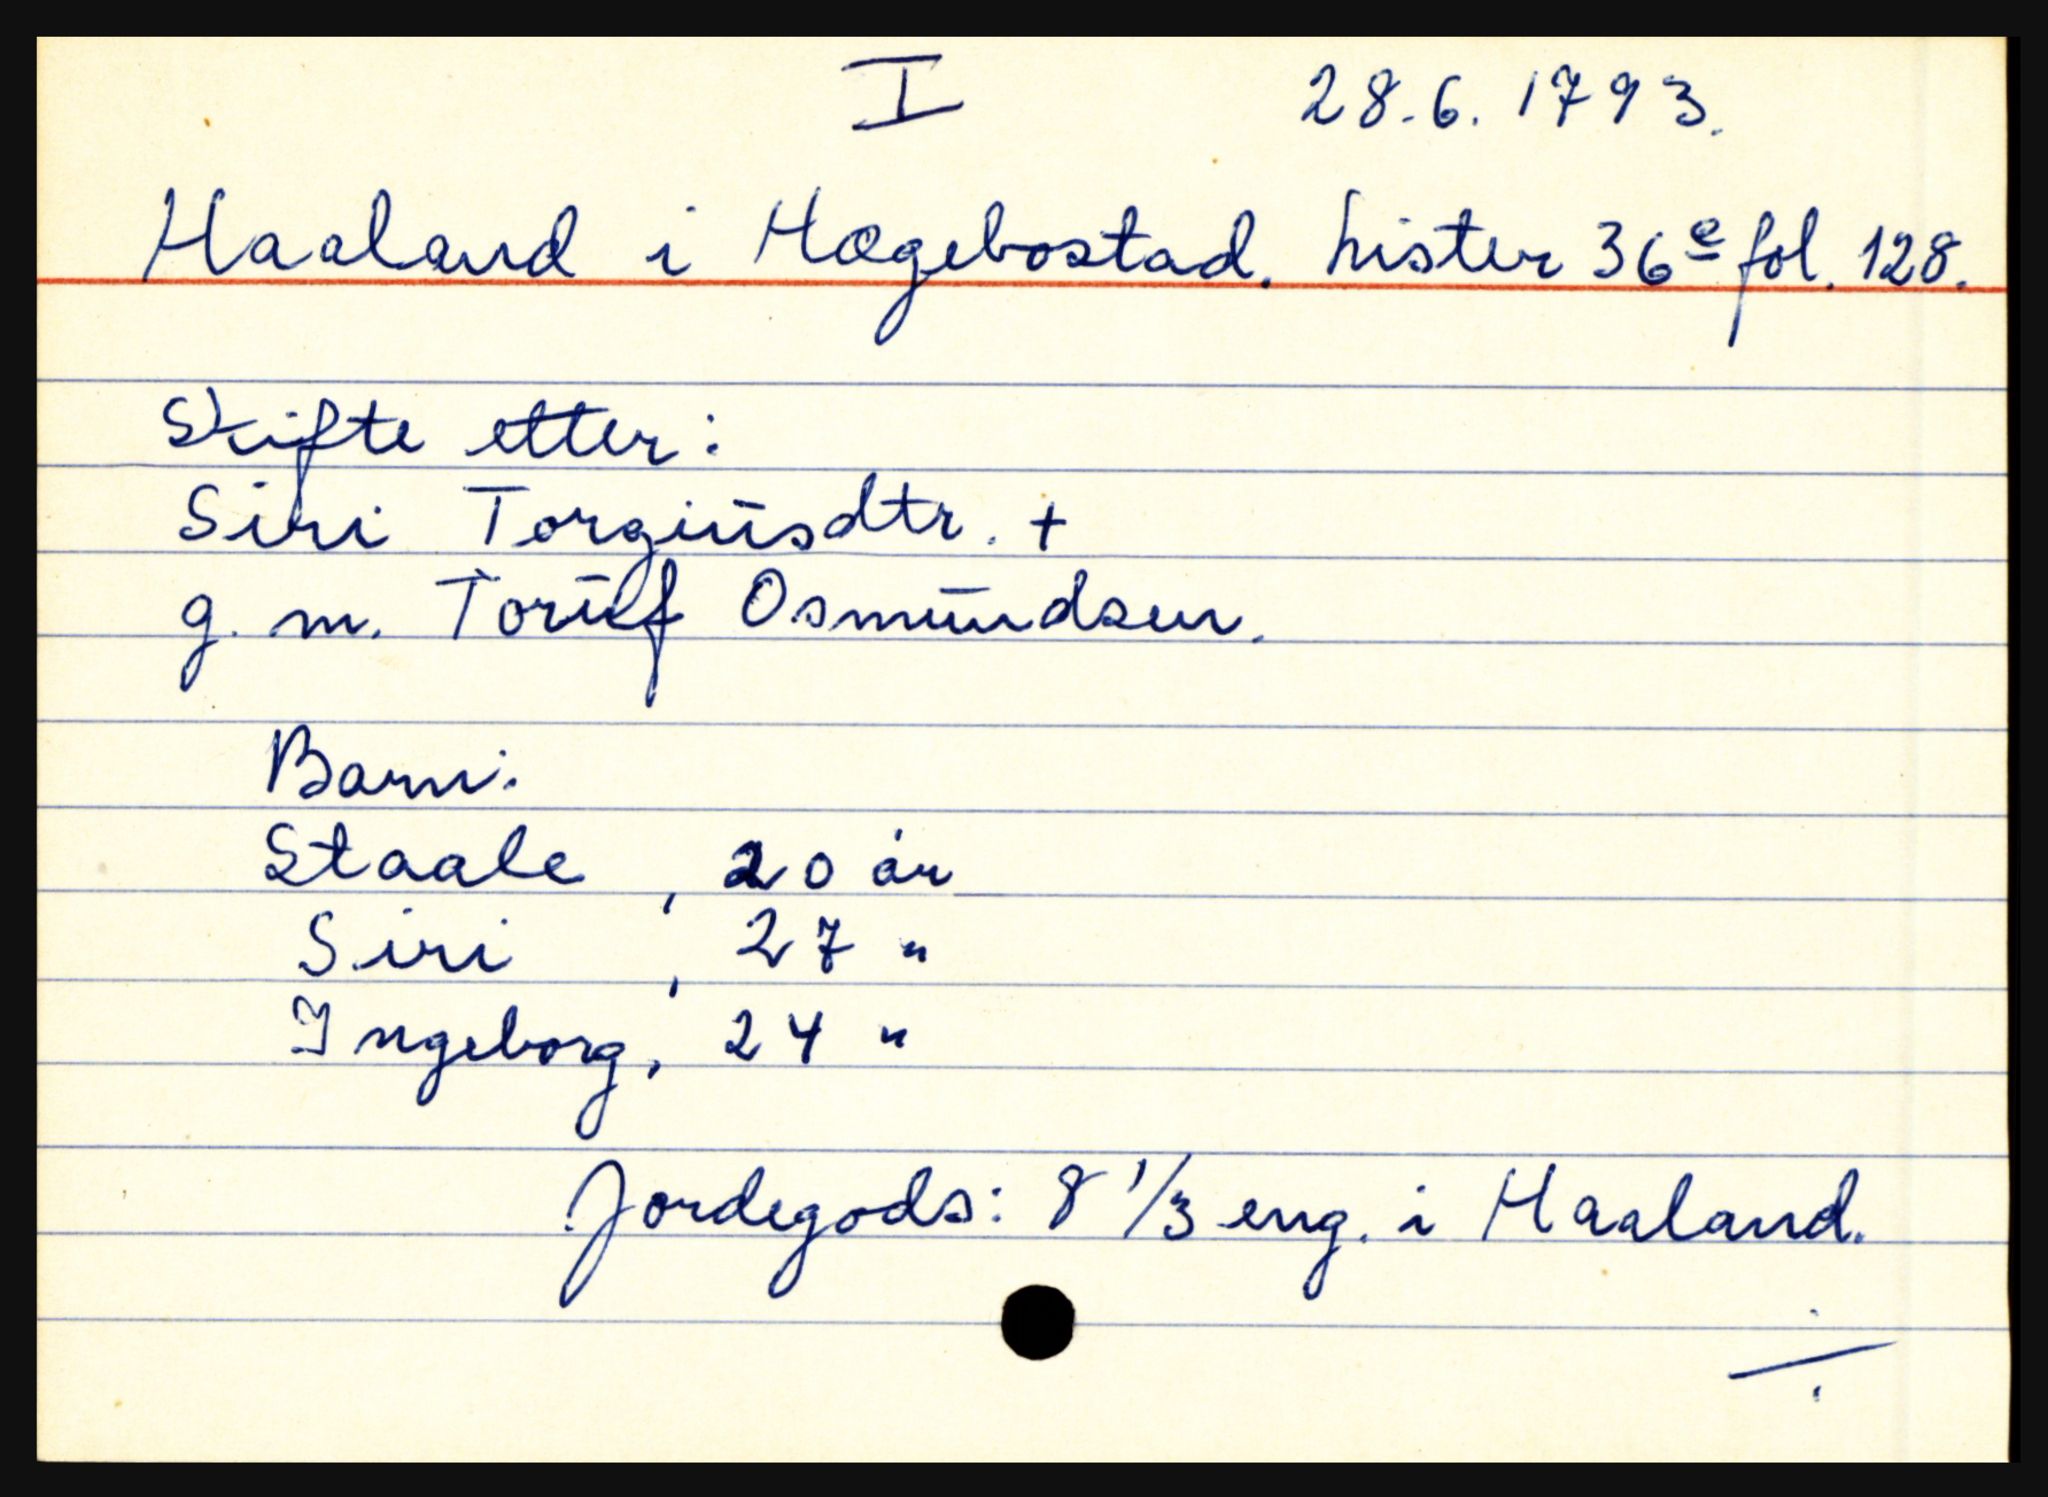 I 28.6.1793.
Haaland i Hægebostad. Lister 36e fol. 128.
Skifte etter:
Siri Torgiusdtr. +
g. m. Torulf Osmundsen.
Barn:
Staale , 20 år
Siri , 27 "
Ingeborg, 24 "
Jordegods: 8 1/3 eng. i Haaland.